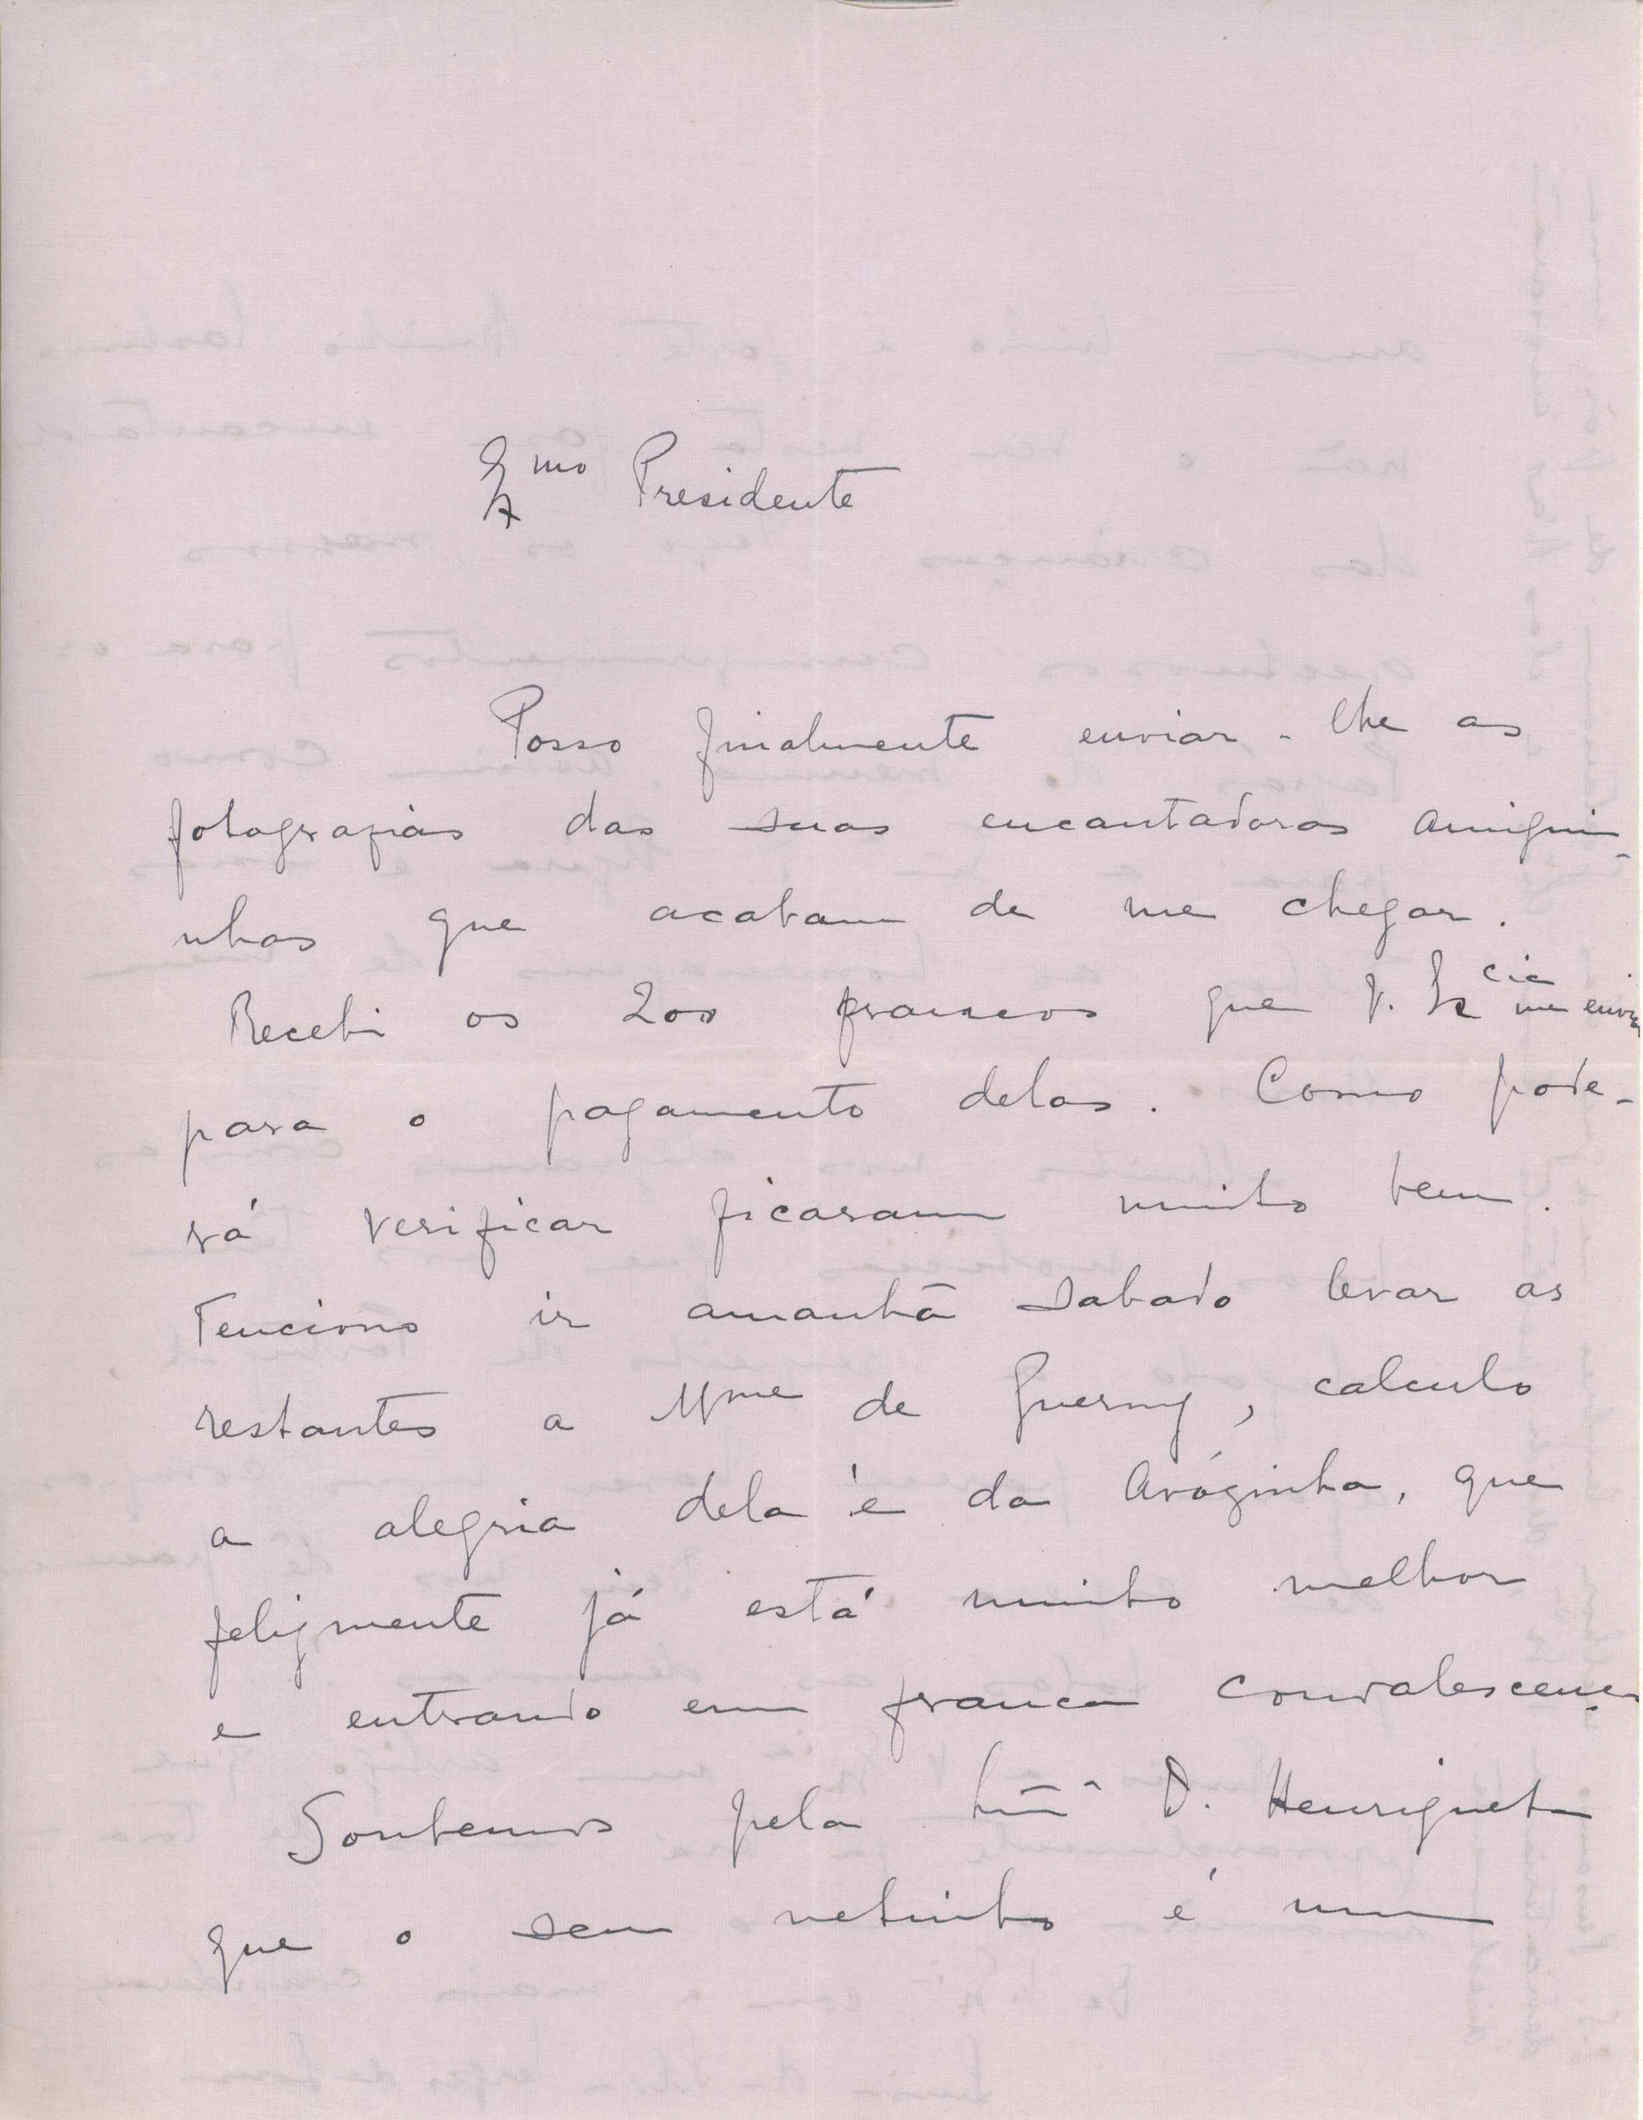 Exmo Presidente
Posso finalmente enviar-lhe as
fotografias das suas encantadoras amigui-
nhas que acabam de me chegar.
Recebi os 200 francos que V. Excia me envia
para o pagamento delas. Como pode-
rá verificar ficaram muito bem.
Tenciono ir amanhã sabado levar as
restantes a Mme de Guerny, calculo
a alegria dela e da Avózinha, que
felizmente já está muito melhor
e entrando em franca convalescen-
Soubemos pela D. Henriqueta
que o seu netinho é um